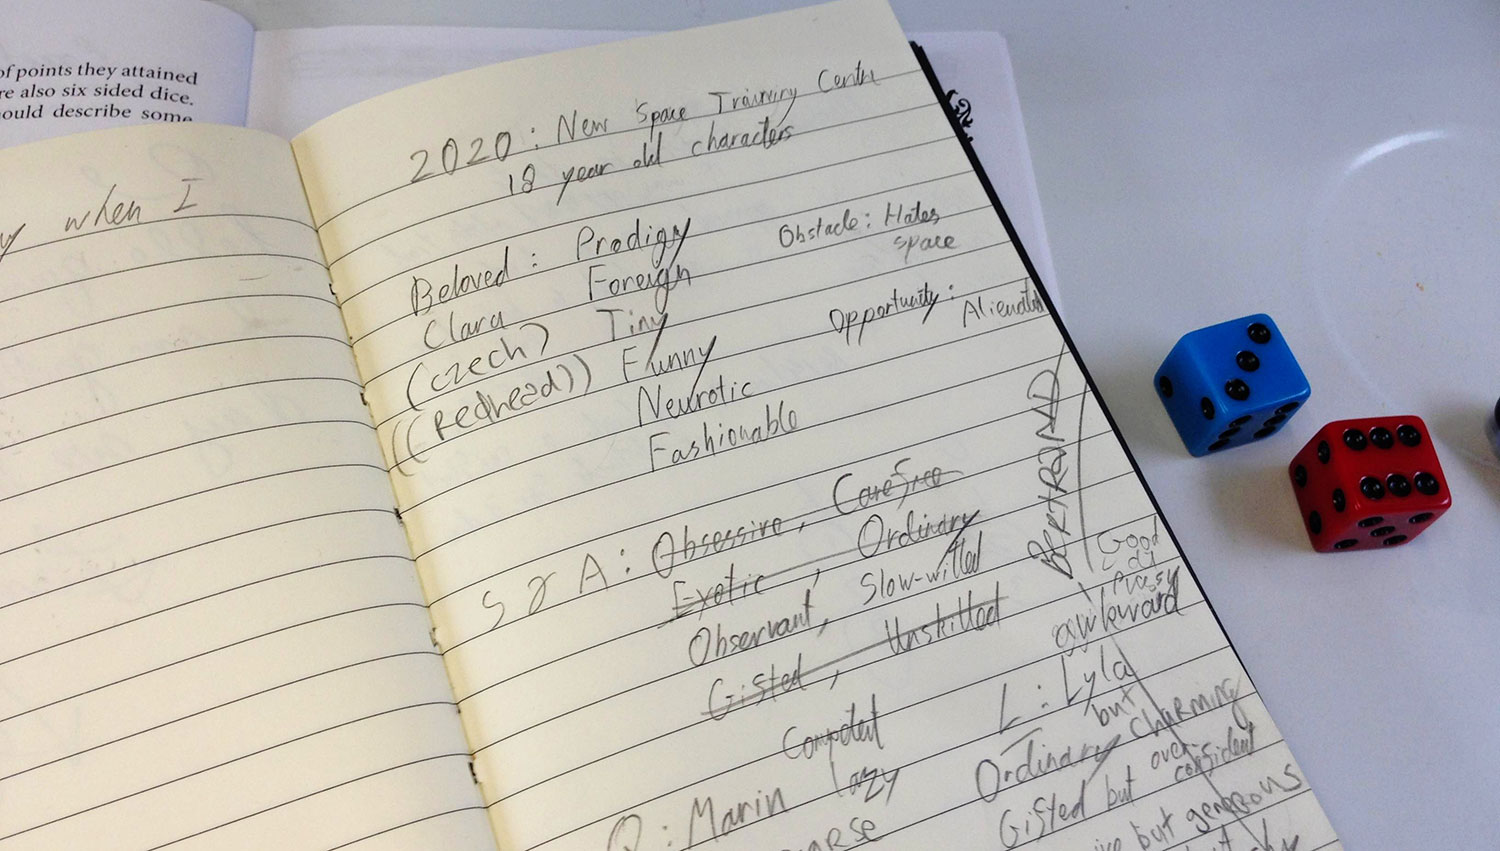 of points they attained
re also six sided dice.
ould describe some
y when I
2020: New Space Training Centre
18 year old characters
Beloved: Prodigy
Clara Foreign
(czech) Tiny
((redhead)) Funny
Neurotic
Fashionable
Obstacle: Hates
space
Opportunity:
S & A: Obsessive, Carefree
Exotic, Ordinary
Observant, Slow-witted
Gifted, Unskilled
Competent
lazy
BERTRAND
Good
awkward
L: Lyla
Ordinary but charming
Gifted but over
confident
but generous
Q: Marin